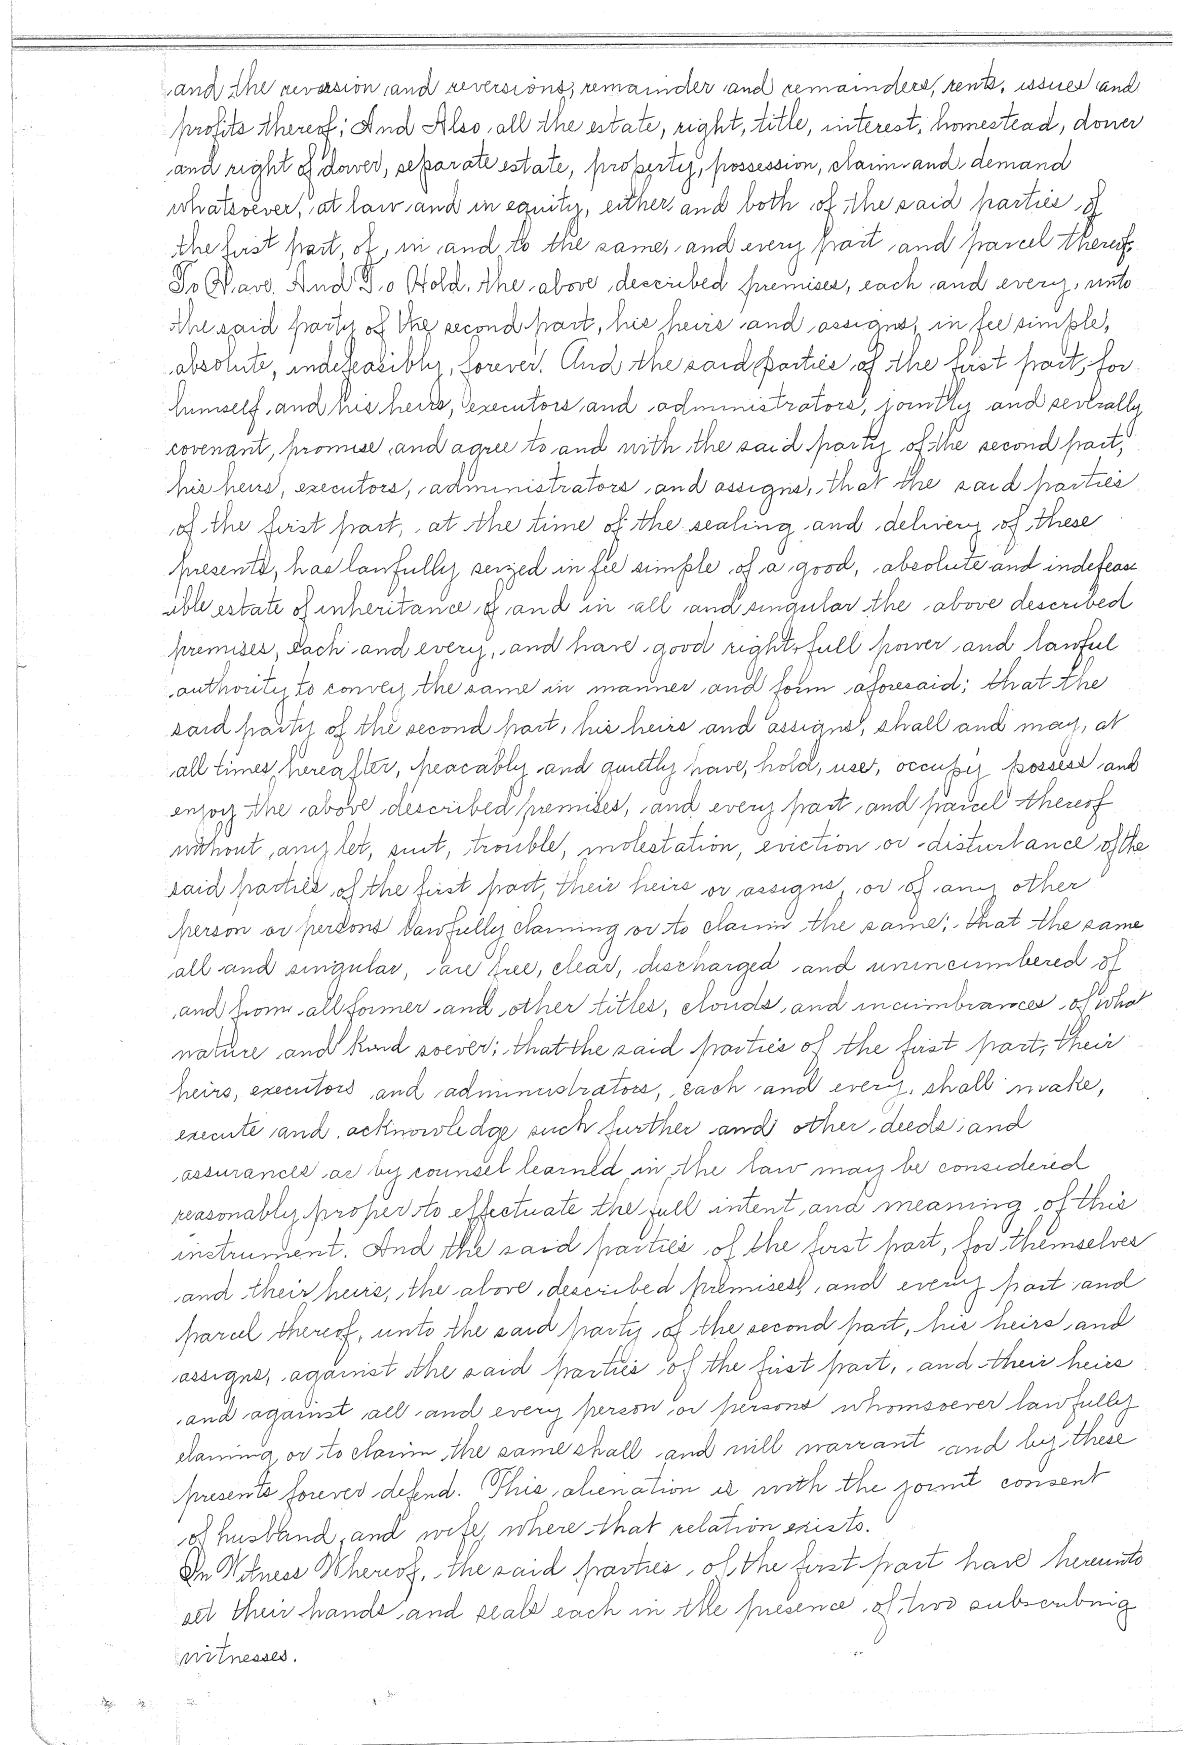 and the reversion and reversions, remainder and remainders, rents, issues and
profits thereof; And Also all the estate, right, title, interest, homestead, dower
and right of dower, separate estate, property, possession, claim and demand
whatsoever, at law and in equity, either and both of the said parties of
the first part, of, in and to the same, and every part and parcel thereof.
To Have And To Hold, the above described premises, each and every, unto
the said party of the second part, his heirs and assigns, in fee simple,
absolute, indefeasibly, forever. And the said parties of the first part, for
himself and his heirs, executors and administrators, jointly and severally
covenant, promise and agree to and with the said party of the second part,
his heirs, executors, administrators and assigns, that the said parties
of the first part, at the time of the sealing and delivery of these
presents, has lawfully seized in fee simple of a good, absolute and indefeas
ible estate of inheritance of and in all and singular the above described
premises, each and every, and have good right, full power and lawful
authority to convey the same in manner and form aforesaid; that the
said party of the second part, his heirs and assigns, shall and may, at
all times hereafter, peacably and quietly have, hold, use, occupy possess and
enjoy the above described premises, and every part and parcel thereof
without any let, suit, trouble, molestation, eviction or disturbance of the
said parties of the first part, their heirs or assigns, or of any other
person or persons lawfully claming or to claim the same; that the same
all and singular, are free, clear, discharged and unincumbered of
and from all former and other titles, clouds and incumbrances of what
nature and kind soever; that the said parties of the first part, their
heirs, executors and administrators, each and every, shall make,
execute and acknowledge such further and other deeds and
assurances as by counsel learned in the law may be considered
reasonably proper to effectuate the full intent and meaning of this
instrument. And the said parties of the first part, for themselves
and their heirs, the above described premises, and every part and
parcel thereof, unto the said party of the second part, his heirs and
assigns, against the said parties of the first part, and their heirs
and against all and every person or persons whomsoever lawfully
claming or to claim the same shall and will warrant and by these
presents forever defend. This alienation is with the joint consent
of husband and wife, where that relation exists.
In Witness Whereof, the said parties of the first part have hereunto
set their hands and seals each in the presence of two subscribing
witnesses.